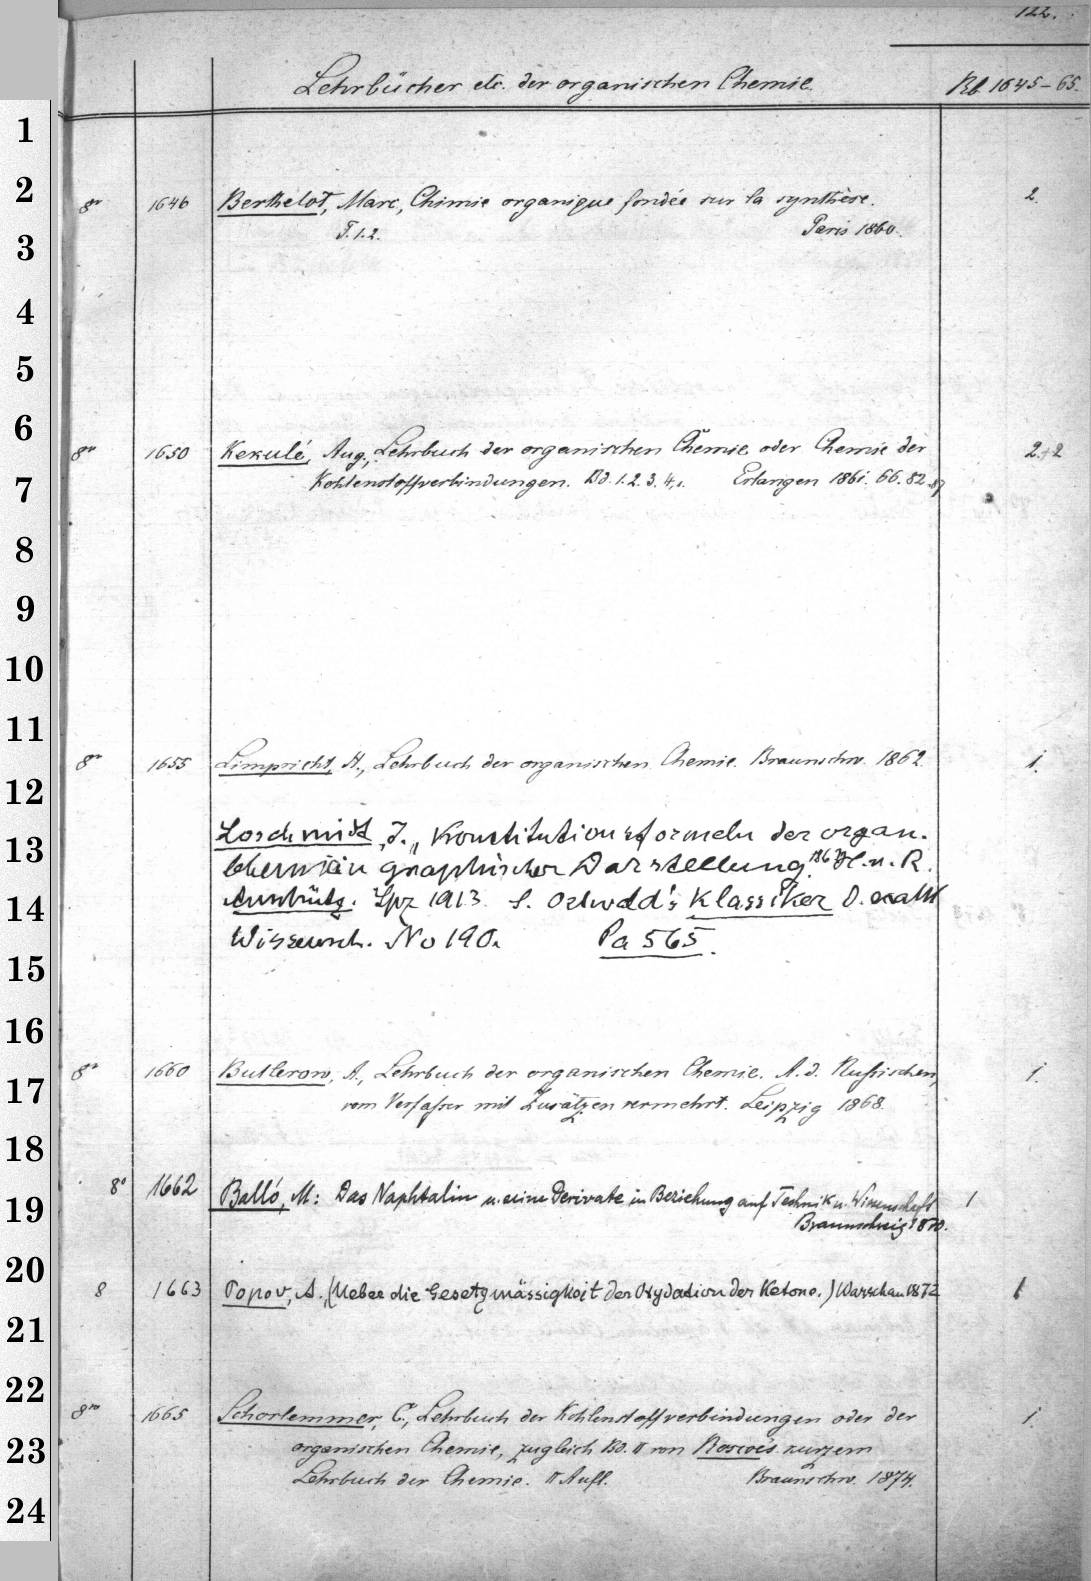 122.
Lehrbücher etc. der organischen Chemie. Rb 1645-65.
1
2
8vo 1646 Berthelot, Marc, Chimie organique fondée sur la synthèse. 2.
T. 1.2. Paris 1860.
3
4
5
6
8vo 1650 Kekulé, Aug., Lehrbuch der organischen Chemie oder Chemie der 2.+2
7
Kohlenstoffverbindungen. Bd. 1. 2. 3. 4,1. Erlangen 1861. 66. 82. 87
8
9
10
11
8vo 1655 Limpricht, H., Lehrbuch der organischen Chemie. Braunschw. 1862. 1.
12
13
Loschmidt, J., Konstitutionsformeln der organ.
Chemie in graphischer Darstellung. 1861 H. v. R.
14
Anschütz. Lpz 1913. s. Ostwald's Klassiker d. exakt
Wissensch. No 190. Pa 565.
15
16
17
8vo 1660 Butlerow, A., Lehrbuch der organischen Chemie. A. d. Russischen, 1.
vom Verfasser mit Zusätzen vermehrt. Leipzig 1868.
18
19
8° 1662 Balló, M: Das Naphtalin u. seine Derivate in Beziehung auf Technik u. Wissenschaft 1
Braunschweig 1870.
20
8 1663 Popov, A., (Ueber die Gesetzmässigkeit der Oxydation der Ketone.) Warschau 1872 1
21
22
8vo 1665 Schorlemmer, C., Lehrbuch der Kohlenstoffverbindungen oder der 1.
23
organischen Chemie, zugleich Bd. II von Roscoe's kurzem
Lehrbuch der Chemie. II Aufl. Braunschw. 1874.
24